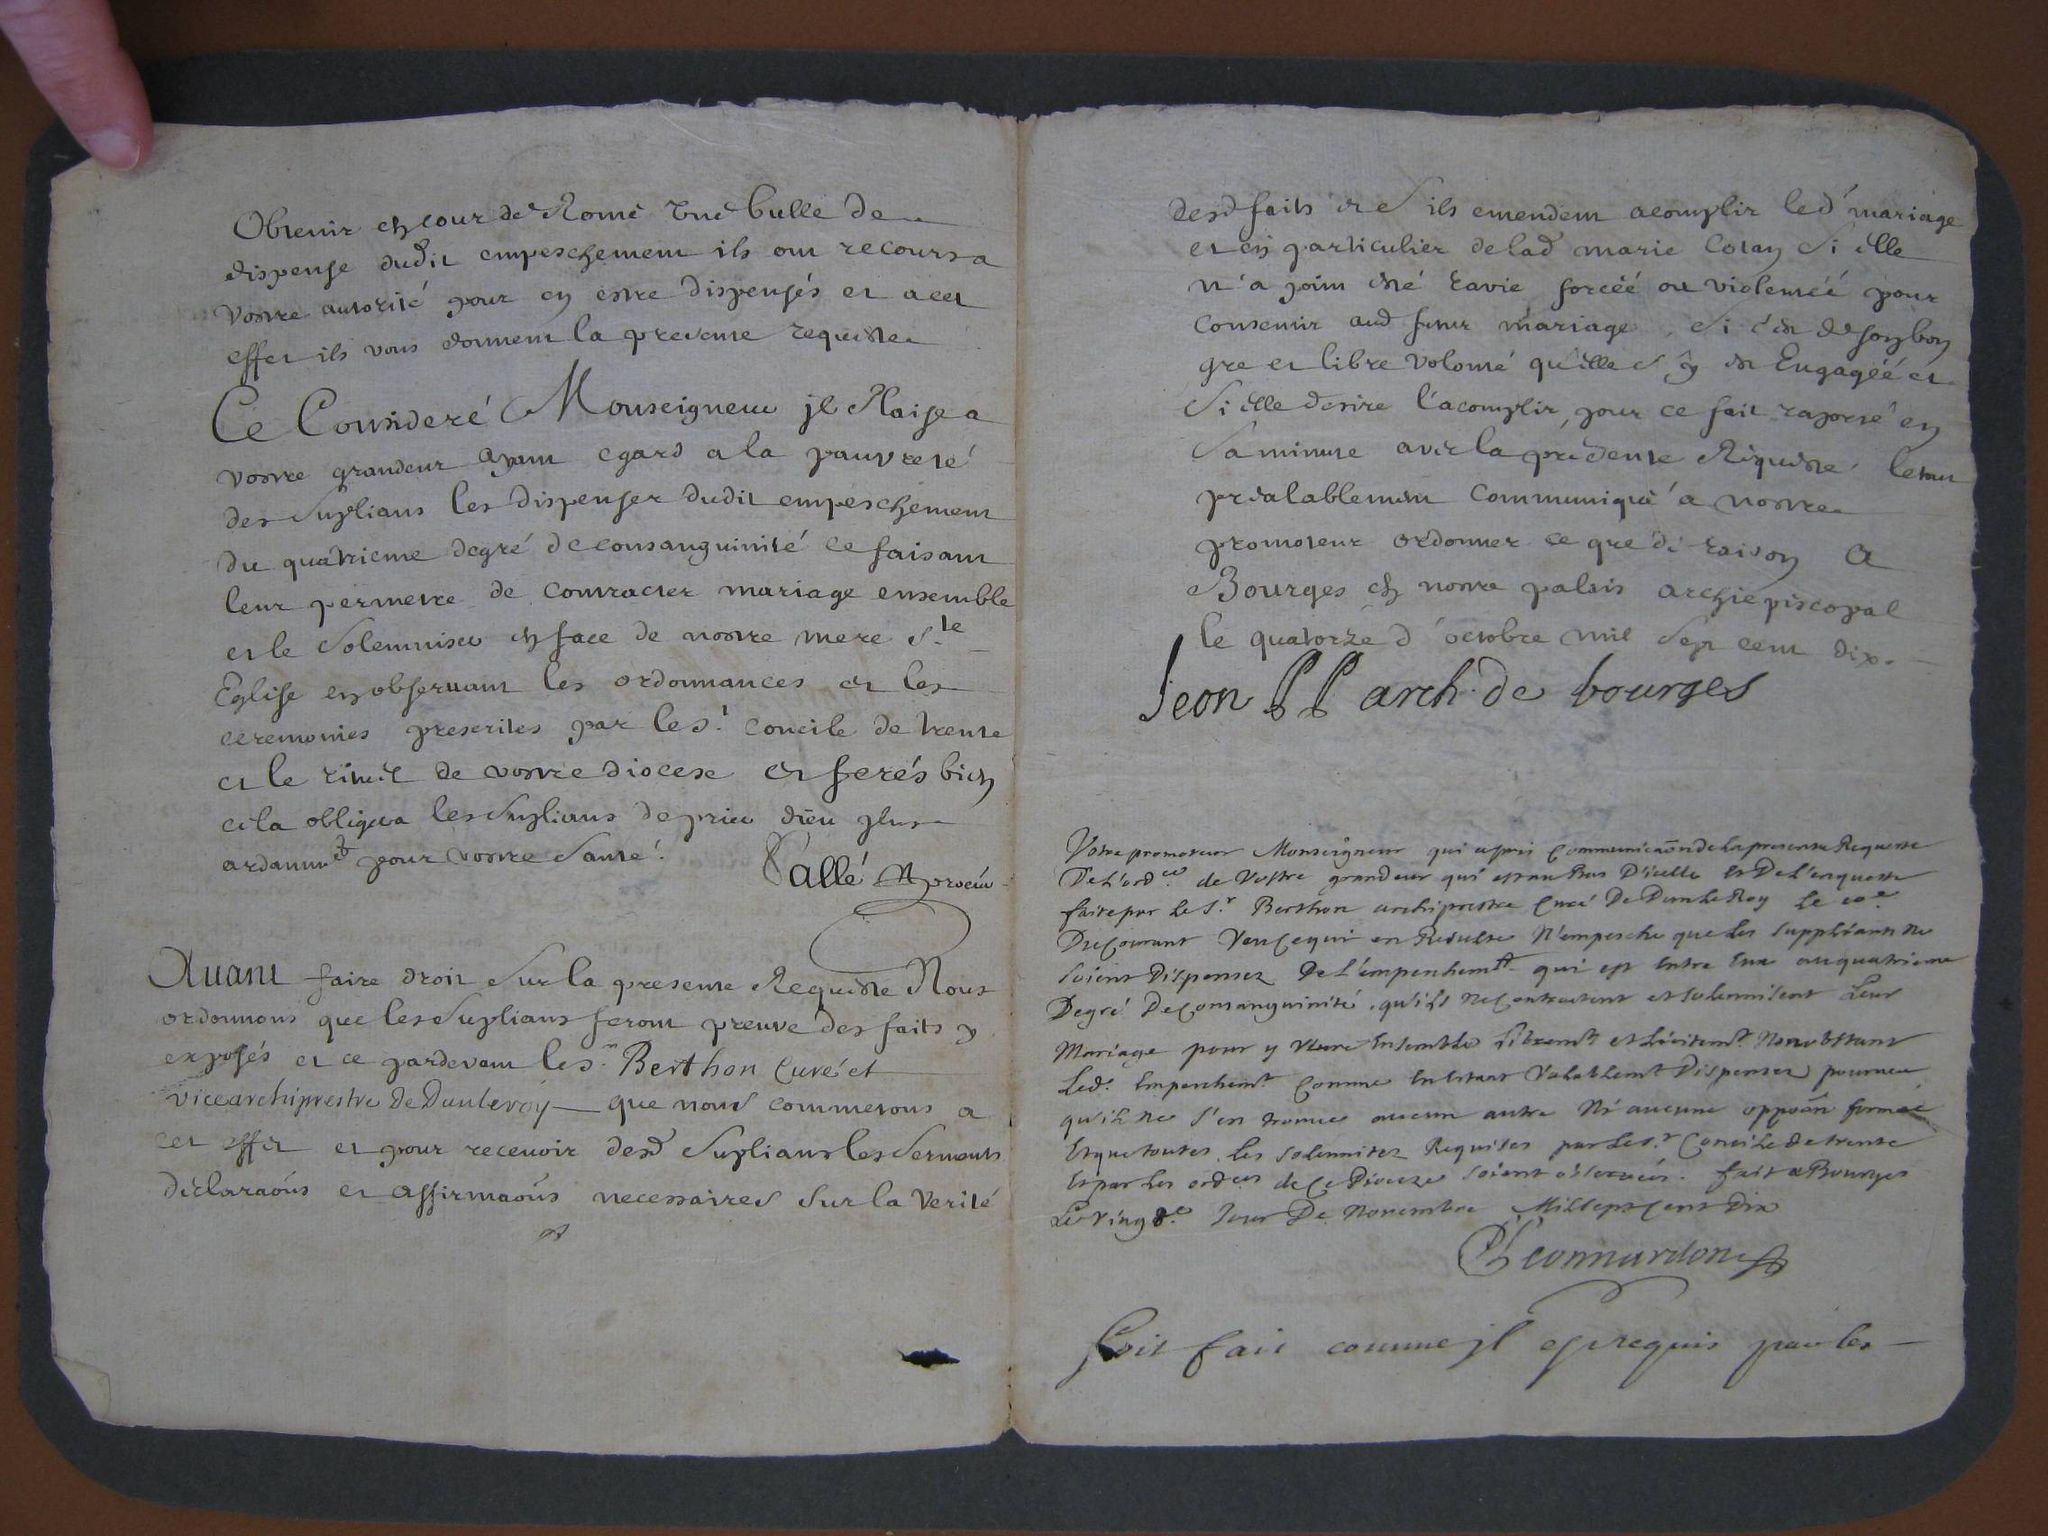 Obtenir en cour de Rome une bulle de
dispense dudit empeschement ils ont recours a
vostre autorité pour en estre dispensés et a cet
effet ils vous donnent la presente requeste
Ce Consideré Monseigneur jl Plaise a
vostre grandeur ayant egard a la pauvreté
des Suplians les dispenser dudit empeschement
du quatrieme degré de consanguinité ce faisant
leur permetre de contracter mariage ensemble
et le solemniser en face de nostre mere Ste
Eglise en observant les ordonnances et les
ceremonies prescrites par le st concile de trente
et le rituel de vostre diocese et ferés bien
cela obligera les Suplians de prier dieu plus
ardamt pour vostre santé.
Vallé
Avant faire droit sur la presente Requeste Nous
ordonnons que les Suplians feront preuve des faits y
exposés et ce pardevant le sr Berthon Curé et
vicearchiprestre de Dunleroy que nous commetons a
cet effet et pour recevoir desd Suplians les serments
declaraōns et affirmaōns necessaires sur la verité
desd faits et s'ils entendent acomplir led mariage
et en particulier de lad marie Cotan si elle
n'a point esté ravie forcéé ou violentéé pour
consentir aud futur mariage, si c'est de son bon
gre et libre volonté qu'elle s'y est Engagéé et
si elle desire l'acomplir, pour ce fait raporté en
sa minute avec la presente Requeste le tout
préalablement communiqué a nostre
promoteur ordonner ce que de raison a
Bourges en nostre palais archiepiscopal
le quatorze d'octobre mil sept cent dix.
Leon PP arch. de bourges
Votre promoteur Monseigneur qui a pris communicaōn de la presente Requeste
De l'ordce de Vostre grandeur qui est au bas d'icelle et De l'enqueste
faite par le Sr Berthon archiprestre Curé De Dun le Roy le 10e
Du Courant Veu ce qui en Resulte N'empesche que les suppliants ne
soient Dispensez De l'empeschemt qui est entre Eux au quatrieme
Degré De Consanguinité, qu'ils ne contractent et solennisent leur
Mariage pour y vivre ensemble libremt et licitemt Nonobstant
led. Empeschemt Comme en estant valablemt Dispensez pourveu
qu'il ne s'en trouve aucun autre Ni aucune oppoōn formée
Et que toutes les solennitez Requises par le st Concile de trente
Et par les ordces de ce Dioceze soient observées. fait a Bourges
Le Ving 8e Jour De Novembre Mil sept Cent Dix
Soit fait comme jl est requis par les